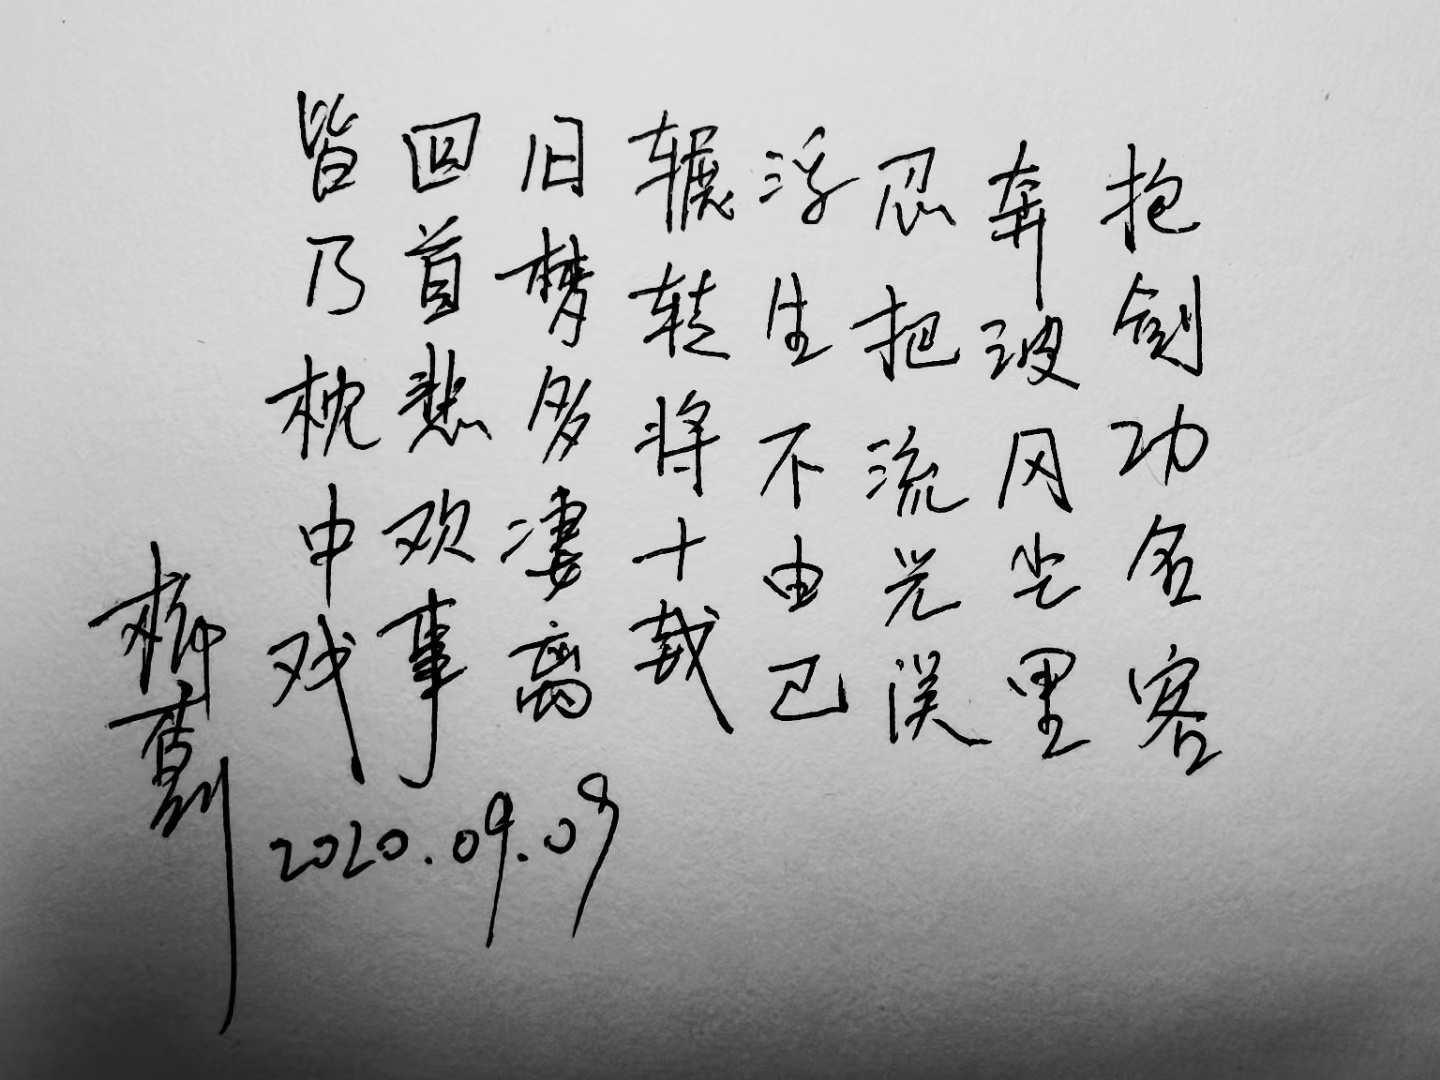 抱剑功名客
奔波风尘里
忍把流光误
浮生不由己
辗转将十载
旧梦多凄离
回首悲欢事
皆乃枕中戏
2020.09.09